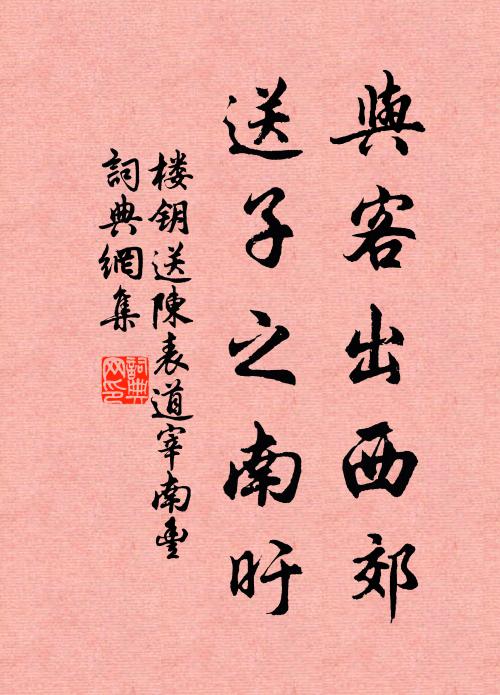 與客出西郊
送子之南旴
楼钥送陳表道宰南豊
詞典網集
詞典
网印